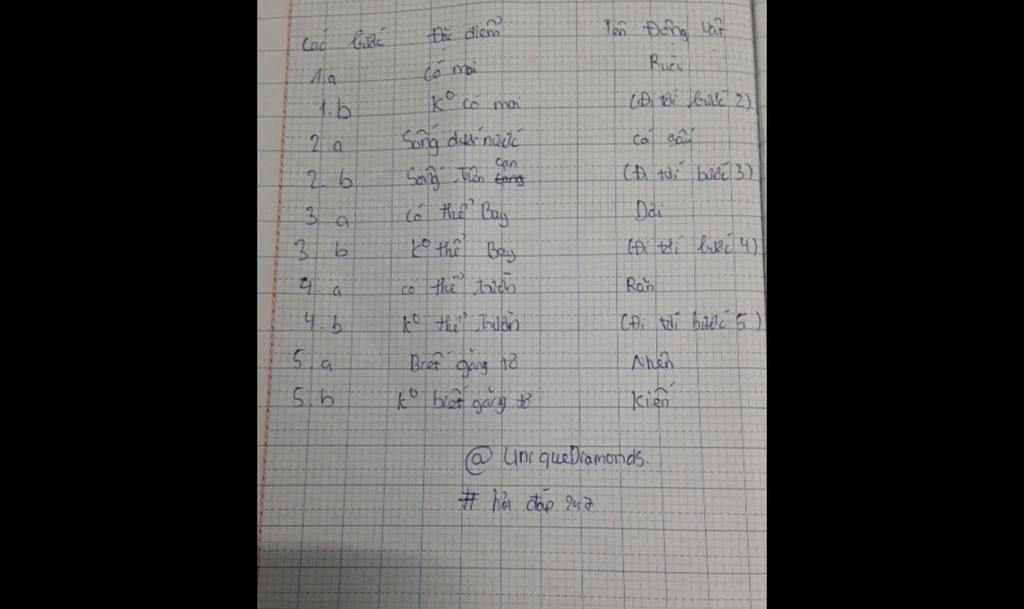 Các bước Đặc điểm Tên Động vật
1.a Có mai Rùa
1.b K° có mai (Đi tới bước 2)
2 a Sống dưới nước Cá sấu
2. b Sống trên cạn (Đi tới bước 3)
3 a Có thể Bay Dơi
3 b K° thể Bay (Đi tới bước 4)
4. a có thể trườn Rắn
4. b K° thể trườn (Đi tới bước 5)
5. a Biết giăng tơ Nhện
5. b K° biết giăng tơ Kiến
@ UniqueDiamonds.
# hỏi đáp 247